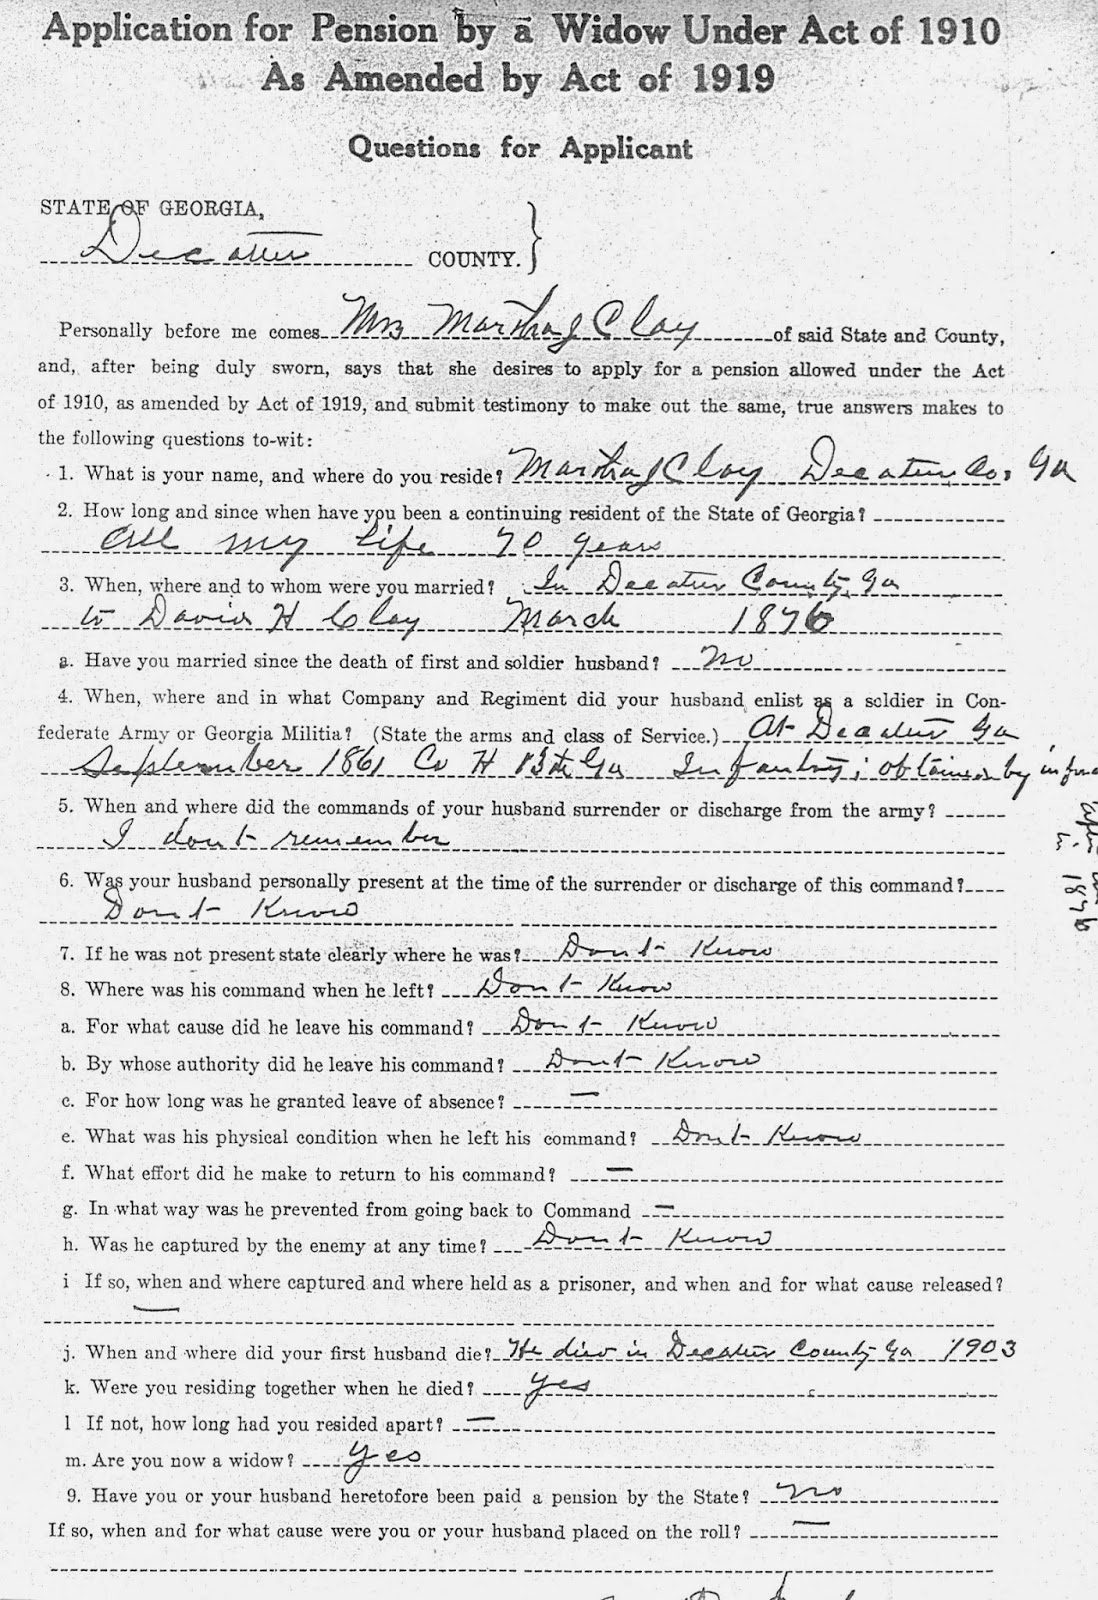 Application for Pension by a Widow Under Act of 1910
As Amended by Act of 1919
Questions for Applicant
STATE OF GEORGIA,
Decatur COUNTY.
Personally before me comes Mrs Martha J Clay of said State and County,
and, after being duly sworn, says that she desires to apply for a pension allowed under the Act
of 1910, as amended by Act of 1919, and submit testimony to make out the same, true answers makes to
the following questions to-wit:
1. What is your name, and where do you reside? Martha J Clay Decatur Co, Ga
2. How long and since when have you been a continuing resident of the State of Georgia?
All my life 70 years
3. When, where and to whom were you married? In Decatur County, Ga
to David H Clay March 1876
a. Have you married since the death of first and soldier husband? No
4. When, where and in what Company and Regiment did your husband enlist as a soldier in Con-
federate Army or Georgia Militia? (State the arms and class of Service.) At Decatur Ga
September 1861 Co H 13th Ga Infantry; obtained by
5. When and where did the commands of your husband surrender or discharge from the army?
I dont remember
6. Was your husband personally present at the time of the surrender or discharge of this command?
Dont Know
7. If he was not present state clearly where he was? Dont Know
8. Where was his command when he left? Dont Know
a. For what cause did he leave his command? Dont Know
b. By whose authority did he leave his command? Dont Know
c. For how long was he granted leave of absence? —
e. What was his physical condition when he left his command? Dont Know
f. What effort did he make to return to his command? —
g. In what way was he prevented from going back to Command —
h. Was he captured by the enemy at any time? Dont Know
i If so, when and where captured and where held as a prisoner, and when and for what cause released?
—
j. When and where did your first husband die? He died in Decatur County Ga 1903
k. Were you residing together when he died? yes
l If not, how long had you resided apart? —
m. Are you now a widow? yes
9. Have you or your husband heretofore been paid a pension by the State? No
If so, when and for what cause were you or your husband placed on the roll? —
1876